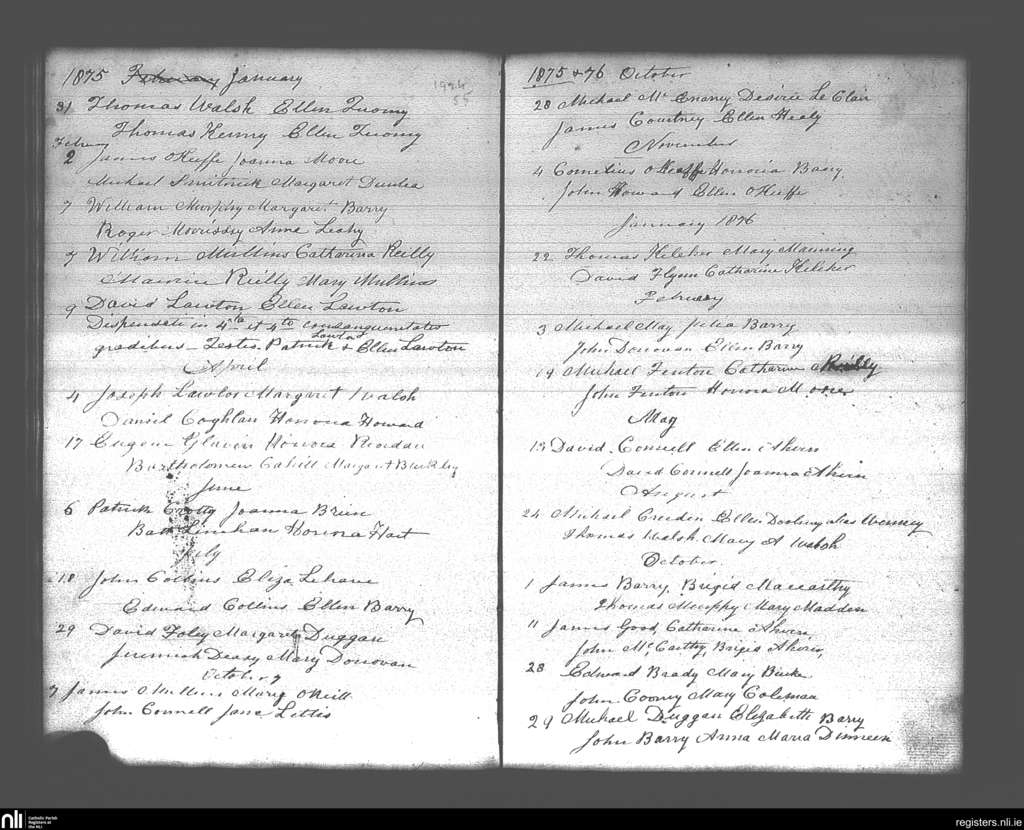 1875 February January
31 Thomas Walsh Ellen Tuomy
Thomas Kenny Ellen Tuomy
February
2 James OKeeffe Joanna Moore
Michael Smitnick Margaret Dunlea
7 William Murphy Margaret Barry
Roger Morrissy Anna Leahy
7 William Mullins Catharina Reilly
Maurice Reilly Mary Mullins
9 David Lawton Ellen Lawton
Dispensati in 4to et 4to consanguinitatis
gradibus - Testes. Patrick Lawton & Ellen Lawton
April
4 Joseph Lawlor Margaret Walsh
Daniel Coghlan Honora Howard
17 Eugene Glavin Honora Riordan
Bartholomew Cahill Margaret Buckley
June
6 Patrick Crotty Joanna Brien
Bat Linehan Honora Hart
July
18 John Collins Eliza Lehane
Edmund Collins Ellen Barry
29 David Foley Margaret Duggan
Jeremiah Deasy Mary Donovan
October
7 James OMullins Mary ONeill
John Connell Jane Lettis
1875 & 76 October
28 Michael Mc Enarny Desirie Le Clair
James Courtney Ellen Healy
November
4 Cornelius OKeeffe Honoria Barry
John Howard Ellen OKeeffe
January 1876
22 Thomas Keleher Mary Manning
David Flynn Catharine Keleher
February
3 Michael May Julia Barry
John Donovan Ellen Barry
19 Michael Fenton Catharine Reilly
John Fenton Honora Moore
May
13 David Connell Ellen Ahern
David Connell Joanna Ahern
August
24 Michael Creedon Ellen Dooling alias
Thomas Walsh Mary A Walsh
October
1 James Barry, Brigid Maccarthy
Thomas Murphy Mary Madden
11 James Good, Catharine Ahern,
John McCarthy, Brigid Ahern,
28 Edward Brady Mary Burke
John Cooney Mary Coleman
29 Michael Duggan Elizabeth Barry
John Barry Anna Maria Dinneen
nli
Catholic Parish
Registers at
the NLI
registers.nli.ie